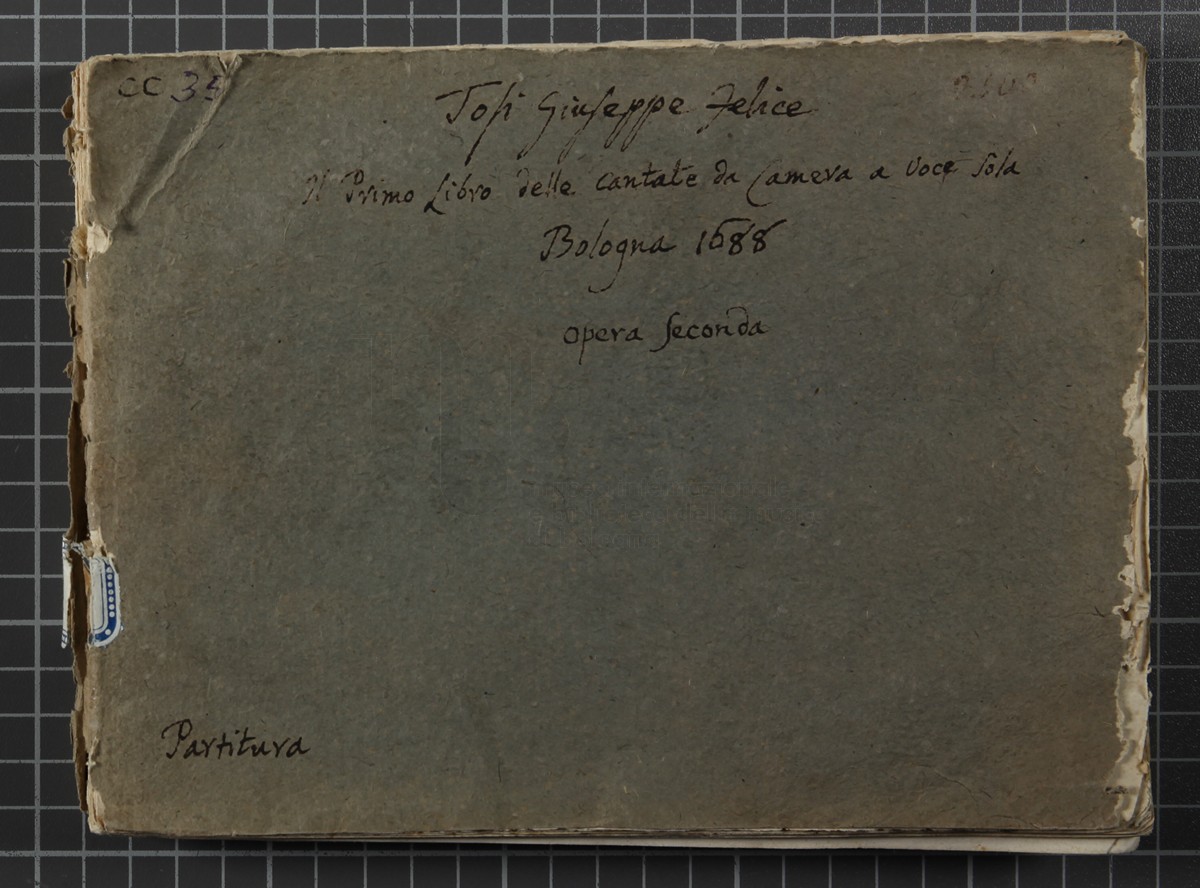 CC 35
Tosi Giuseppe Felice
Il Primo Libro delle Cantate da Camera a Voce sola
Bologna 1688
opera seconda
Partitura